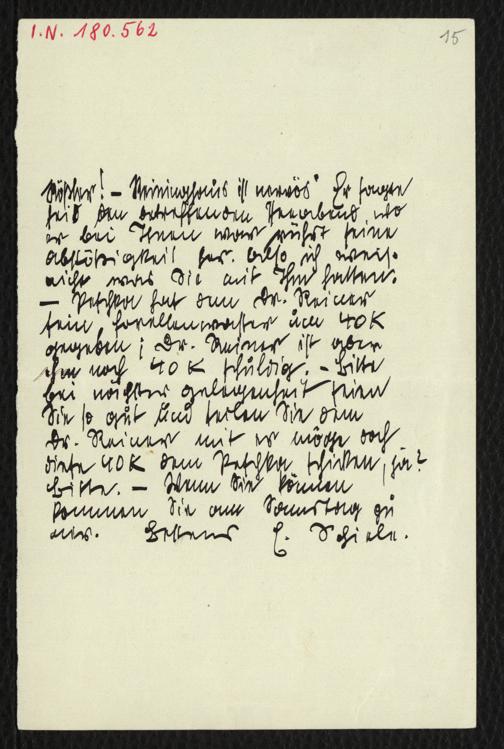 I.N. 180.562
15
Rößler! – Reininghaus ist nervös" Er sagte
seit dem betreffenden Abend, wo
er bei Ihnen war rührt seine
her. also, ich weis
nicht was Sie mit Ihm hatten.
– Peschka hat dem Dr. Reiner
sein Forellenwasser um 40 K
gegeben; Dr. Reiner ist aber
ihm noch 40 K schuldig. – Bitte
bei nächster gelegenheit seien
Sie so gut und teilen Sie dem
Dr. Reiner mit er möge doch
diese 40 K dem Peschka schicken, ja?
Bitte. – Wenn Sie können
kommen Sie am Samstag zu
mir. Bestens E. Schiele.